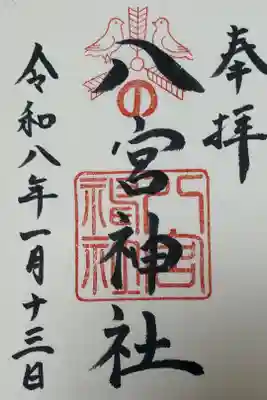 奉拝
八の宮神社
令和八年一月十三日
八宮神社